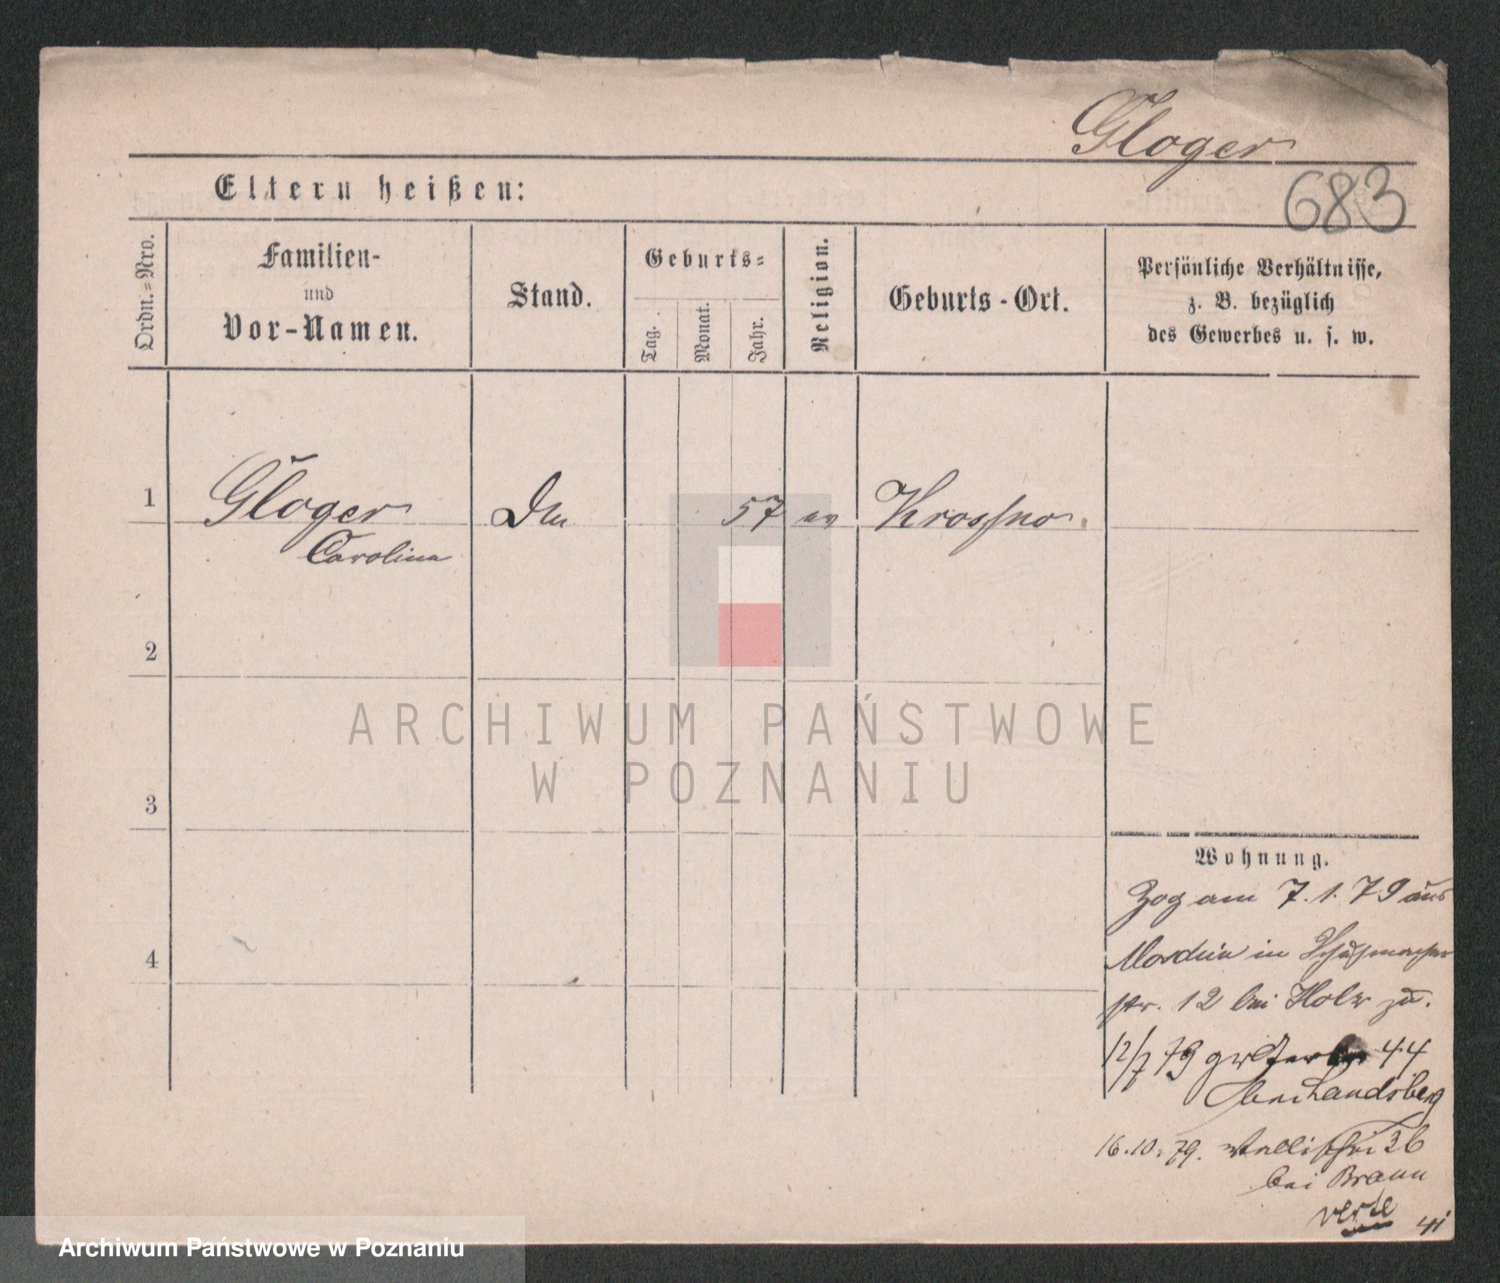 Gloger
683
Eltern heißen:
Ordn.=Nro.
Familien-
und
Vor-Namen.
Stand.
Geburts=
Tag.
Monat.
Jahr.
Religion.
Geburts-Ort.
Persönliche Verhältnisse,
z. B. bezüglich
des Gewerbes u. s. w.
1
Gloger
Carolina
57
ev
Krossno.
2
3
4
ARCHIWUM PAŃSTWOWE
W POZNANIU
Wohnung.
Zog am 7.1.79 aus
in Schuhmacher
str. 12 bei Holz zu.
12/7 79 gr Gerber 44
bei Landsberg
16.10.79. Wallischei 36
bei Braun
verte
Archiwum Państwowe w Poznaniu